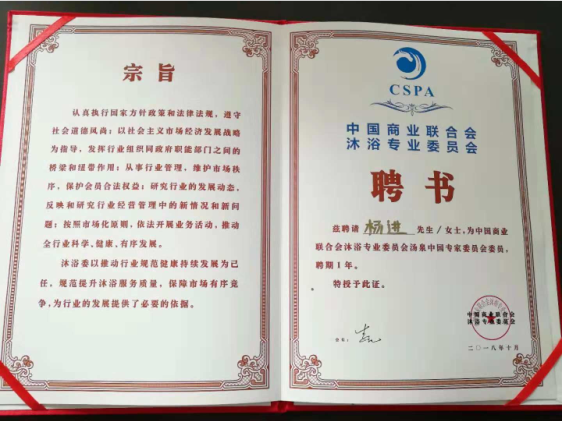 宗旨
认真执行国家方针政策和法律法规，遵守
社会道德风尚；以社会主义市场经济发展战略
为指导，发挥行业组织同政府职能部门之间的
桥梁和纽带作用；从事行业管理，维护市场秩
序，保护会员合法权益；研究行业的发展动态，
反映和研究行业经营管理中的新情况和新问
题；按照市场化原则，依法开展业务活动，推动
全行业科学、健康、有序发展。
沐浴委以推动行业规范健康持续发展为已
任，规范提升沐浴服务质量，保障市场有序竞
争，为行业的发展提供了必要的依据。
CSPA
中国商业联合会
沐浴专业委员会
聘书
兹聘请 杨进 先生/女士，为中国商业
联合会沐浴专业委员会汤泉中国专家委员会委员，
聘期1年。
特授予此证。
中国商业联合会
沐浴专业委员会
二〇一八年十月